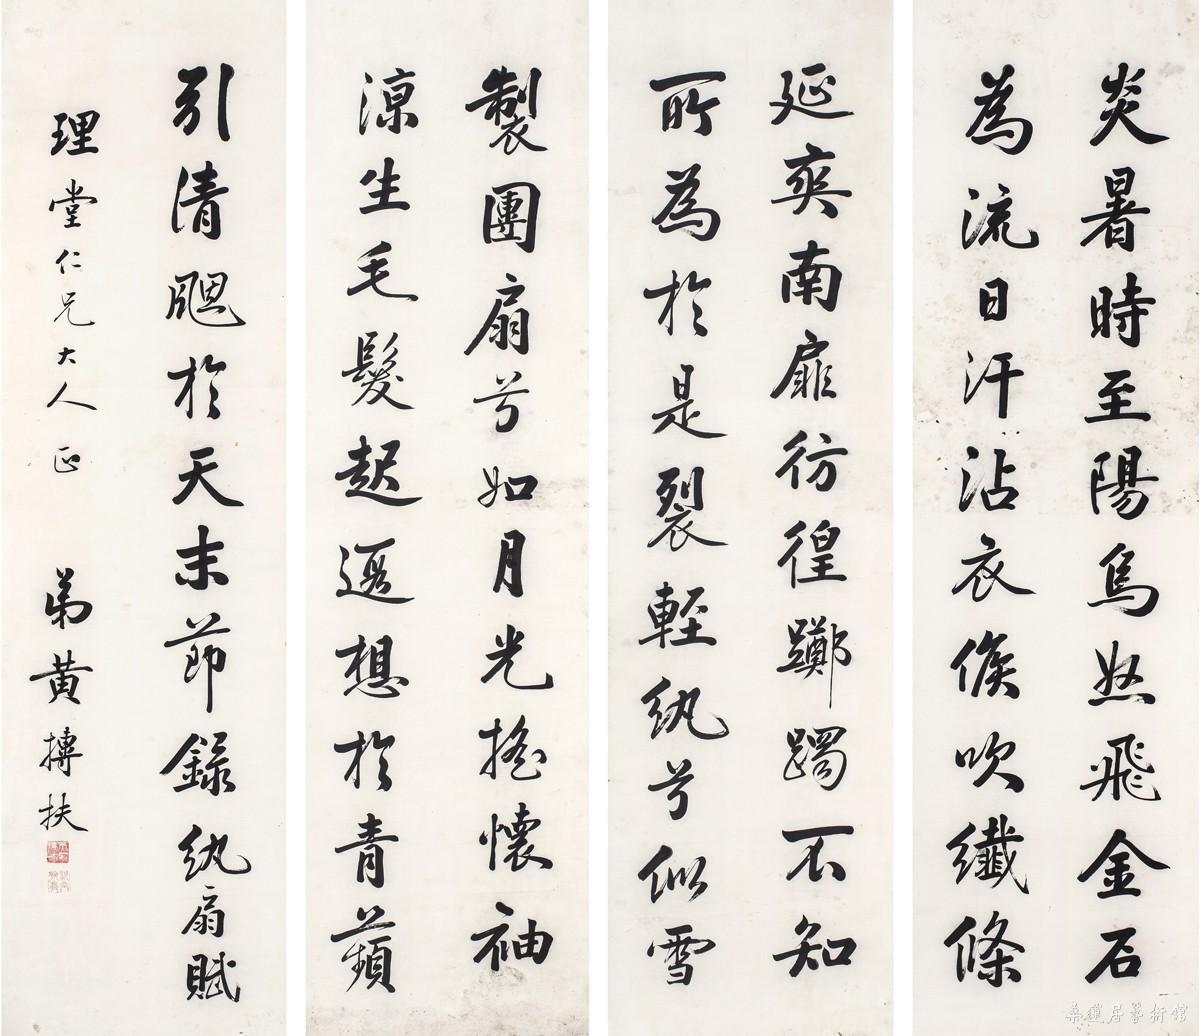 炎暑時至陽烏怒飛金石
為流日汗沾衣倏吹纖條
延爽南扉彷徨躑躅不知
所為於是裂輕紈兮似雪
製團扇兮如月光搖懷袖
涼生毛髮起遐想於青蘋
引清颸於天末節錄紈扇賦
理堂仁兄大人正
弟黃摶扶
桑蠶居藝術館